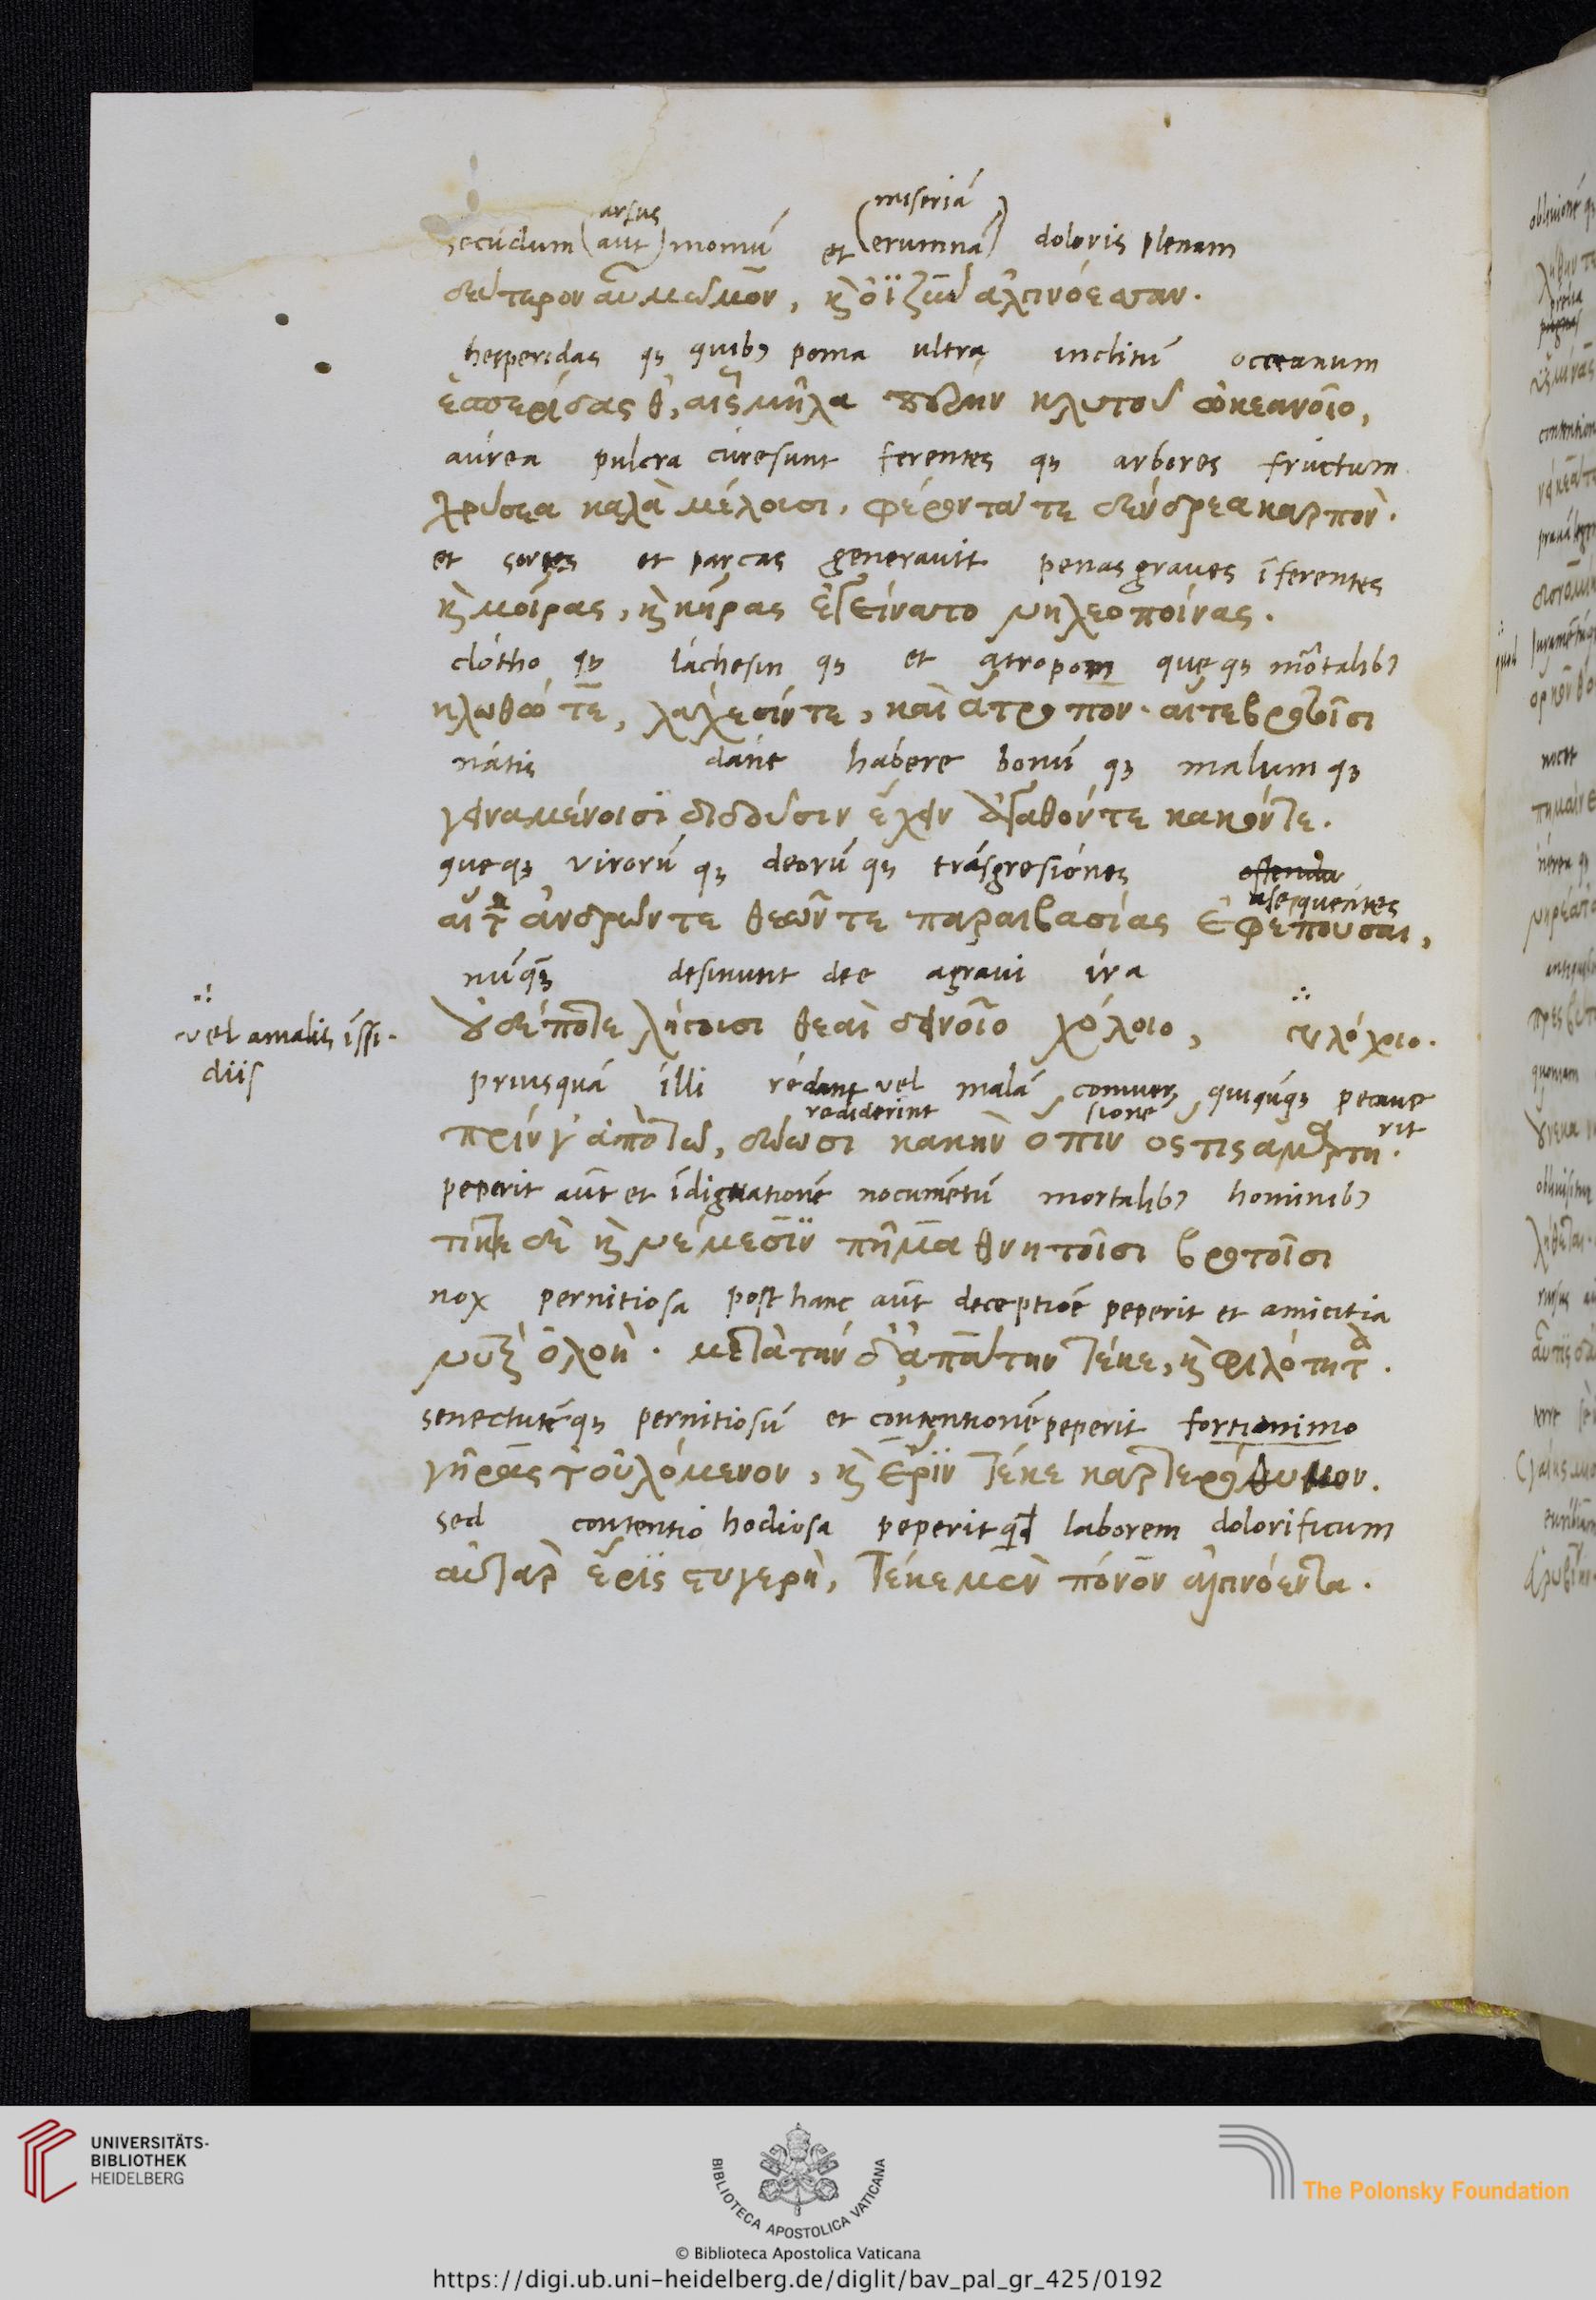 miseriá
arsus
secúdum (aut) momú et (erumná) doloris plenam
δεύτερον αὖ μῶμον, καὶ ὀϊζὺν ἀλγινόεσσαν.
hesperidas qȝ quibȝ poma ultra inclitú occeanum
ἑσπερίδας θ', αἷς μῆλα πέρην κλυτοῦ ὠκεανοῖο,
aúrea pulcra curesunt ferentes qȝ arbores fructum
χρύσεα καλὰ μέλουσι, φέροντά τε δένδρεα καρπόν.
et sortes et parcas generavit penas graves īferentes
καὶ μοίρας, καὶ κῆρας ἐγείνατο νηλεοποίνας.
clótho qȝ láchesin qȝ et atropom que qȝ mortalibȝ
κλωθώ τε, λάχεσίν τε, καὶ ἄτροπον. αἵτε βροτοῖσι
nátis dánt habere bonú qȝ malum qȝ
γεναμένοισι διδοῦσιν ἔχειν ἀγαθόν τε κακόν τε.
que qȝ virorú qȝ deorú qȝ trásgresiónes ostendu
asequentes
αἵ τ' ἀνδρῶν τε θεῶν τε παραιβασίας ἐφέπουσαι,
núqȝ desinunt dee agravi ira
οὐδέποτε λήγουσι θεαὶ δεινοῖο χόλοιο,
vel amalis íssi-
diis
priusquá illi rédant vel malá comver quiqúqȝ pecave
rediderint sione rit
πρίν γ' ἀπὸ τῷ, δώωσι κακὴν ὄπιν ὅστις ἁμάρτῃ.
peperit aut et ídignationé nocumétú mortalibȝ hominibȝ
τίκτε δὲ καὶ νέμεσιν πῆμα θνητοῖσι βροτοῖσι
nox pernitiosa post hanc aut deceptioé peperit et amicitia
νὺξ ὀλοή. μετὰ τὴν δ' ἀπάτην τέκε, καὶ φιλότητα.
senectuté qȝ pernitiosú et contentioné peperit fortianimo
γῆράς τ' οὐλόμενον, καὶ ἔριν τέκε καρτερόθυμον.
sed contentió hodiosa peperit qd laborem dolorificum
αὐτὰρ ἔρις στυγερή, τέκε μὲν πόνον ἀλγινόεντα.
UNIVERSITÄTS-
BIBLIOTHEK
HEIDELBERG
BIBLIOTECA APOSTOLICA VATICANA
The Polonsky Foundation
© Biblioteca Apostolica Vaticana
https://digi.ub.uni-heidelberg.de/diglit/bav_pal_gr_425/0192